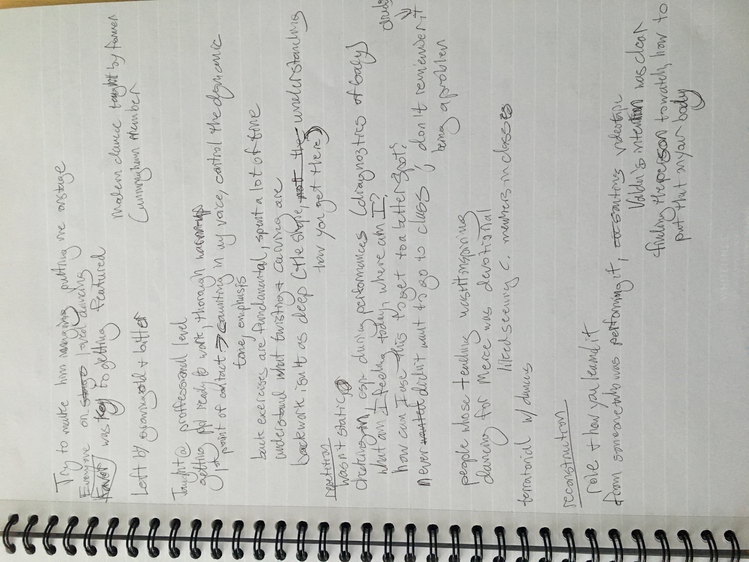 Try to make him imagine putting me onstage
Everyone on stage loved dancing
Favor was key to getting featured
Modern dance taught by former
Cunningham member
Left b/ growing old + bitter
Taught @ professional level
getting ppl ready to work, thorough warmup
1st point of contact → counting in my voice, control the dynamic
tone, emphasis
back exercises are fundamental, spent a lot of time
understand what twisting + curving are
backwork isn't as deep (the shape, not the understanding
how you get there)
repetition
wasn't static
checking in esp. during performances (diagnostics of body)
What am I feeling today, where am I?
how can I use this to get to a better spot?
never wanted didn't want to go to class, don't remember it
being a problem
people whose teaching wasn't inspiring
dancing for Merce was devotional
liked seeing C. members in classes
territorial w/ dances
reconstruction
role + how you learned it
from someone who was performing it, videotape
intention was clear
finding the person to watch, how to
put that on your body